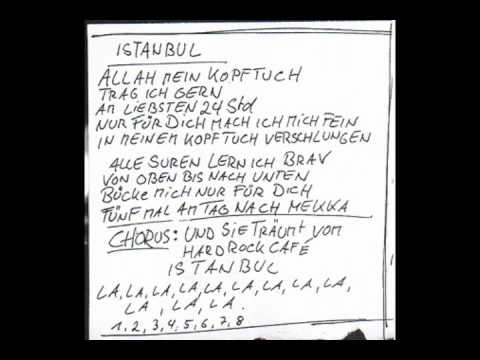 ISTANBUL
ALLAH MEIN KOPFTUCH
TRAG ICH GERN
AM LIEBSTEN 24 Std
NUR FÜR DICH MACH ICH MICH FEIN
IN MEINEM KOPFTUCH VERSCHLUNGEN
ALLE SUREN LERN ICH BRAV
VON OBEN BIS NACH UNTEN
BÜCKE MICH NUR FÜR DICH
FÜNF MAL AM TAG NACH MEKKA
CHORUS: UND SIE TRÄUMT VOM
HARDROCK CAFÉ
ISTANBUL
LA, LA, LA, LA, LA, LA, LA, LA, LA, LA,
LA, LA, LA.
1, 2, 3, 4, 5, 6, 7, 8